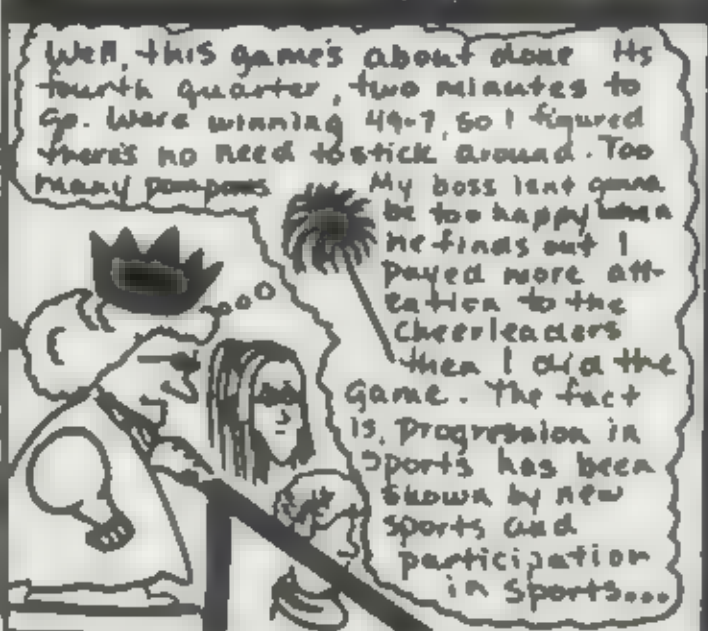 Well, this game's about done Its
fourth quarter, two minutes to
go. Were winning 49-7, so I figured
there's no need to stick around. Too
many pompoms
My boss isnt gonna
be too happy when
he finds out I
payed more att-
ention to the
cheerleaders
then I did the
game. The fact
is, progression in
sports has been
shown by new
sports and
participation
in sports...